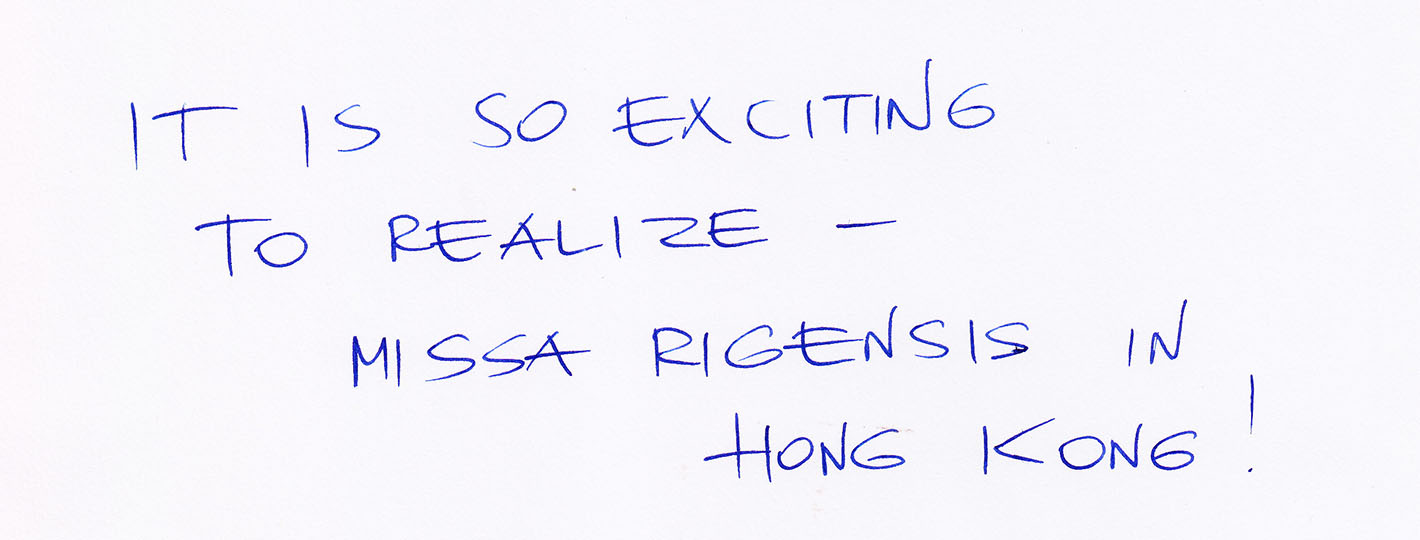 IT IS SO EXCITING
TO REALIZE –
MISSA RIGENSIS IN
HONG KONG!